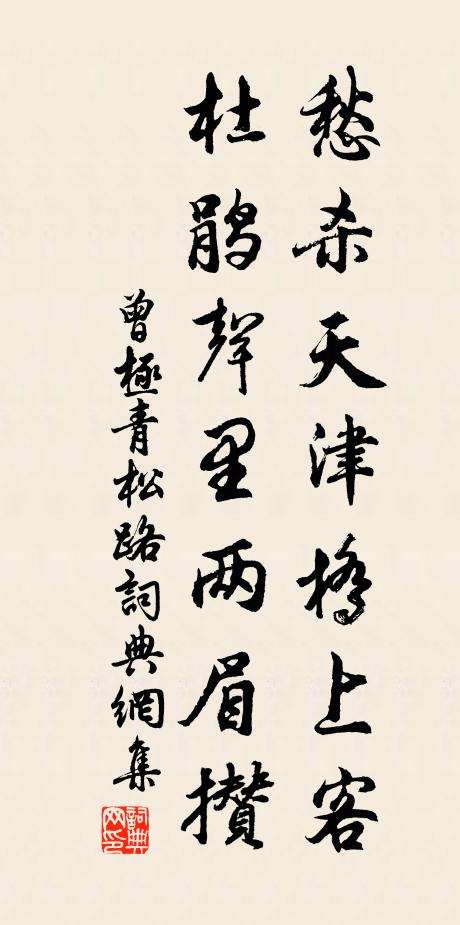 愁杀天津桥上客
杜鹃声里两眉攒
曾極青松路詞典網集
詞典網印